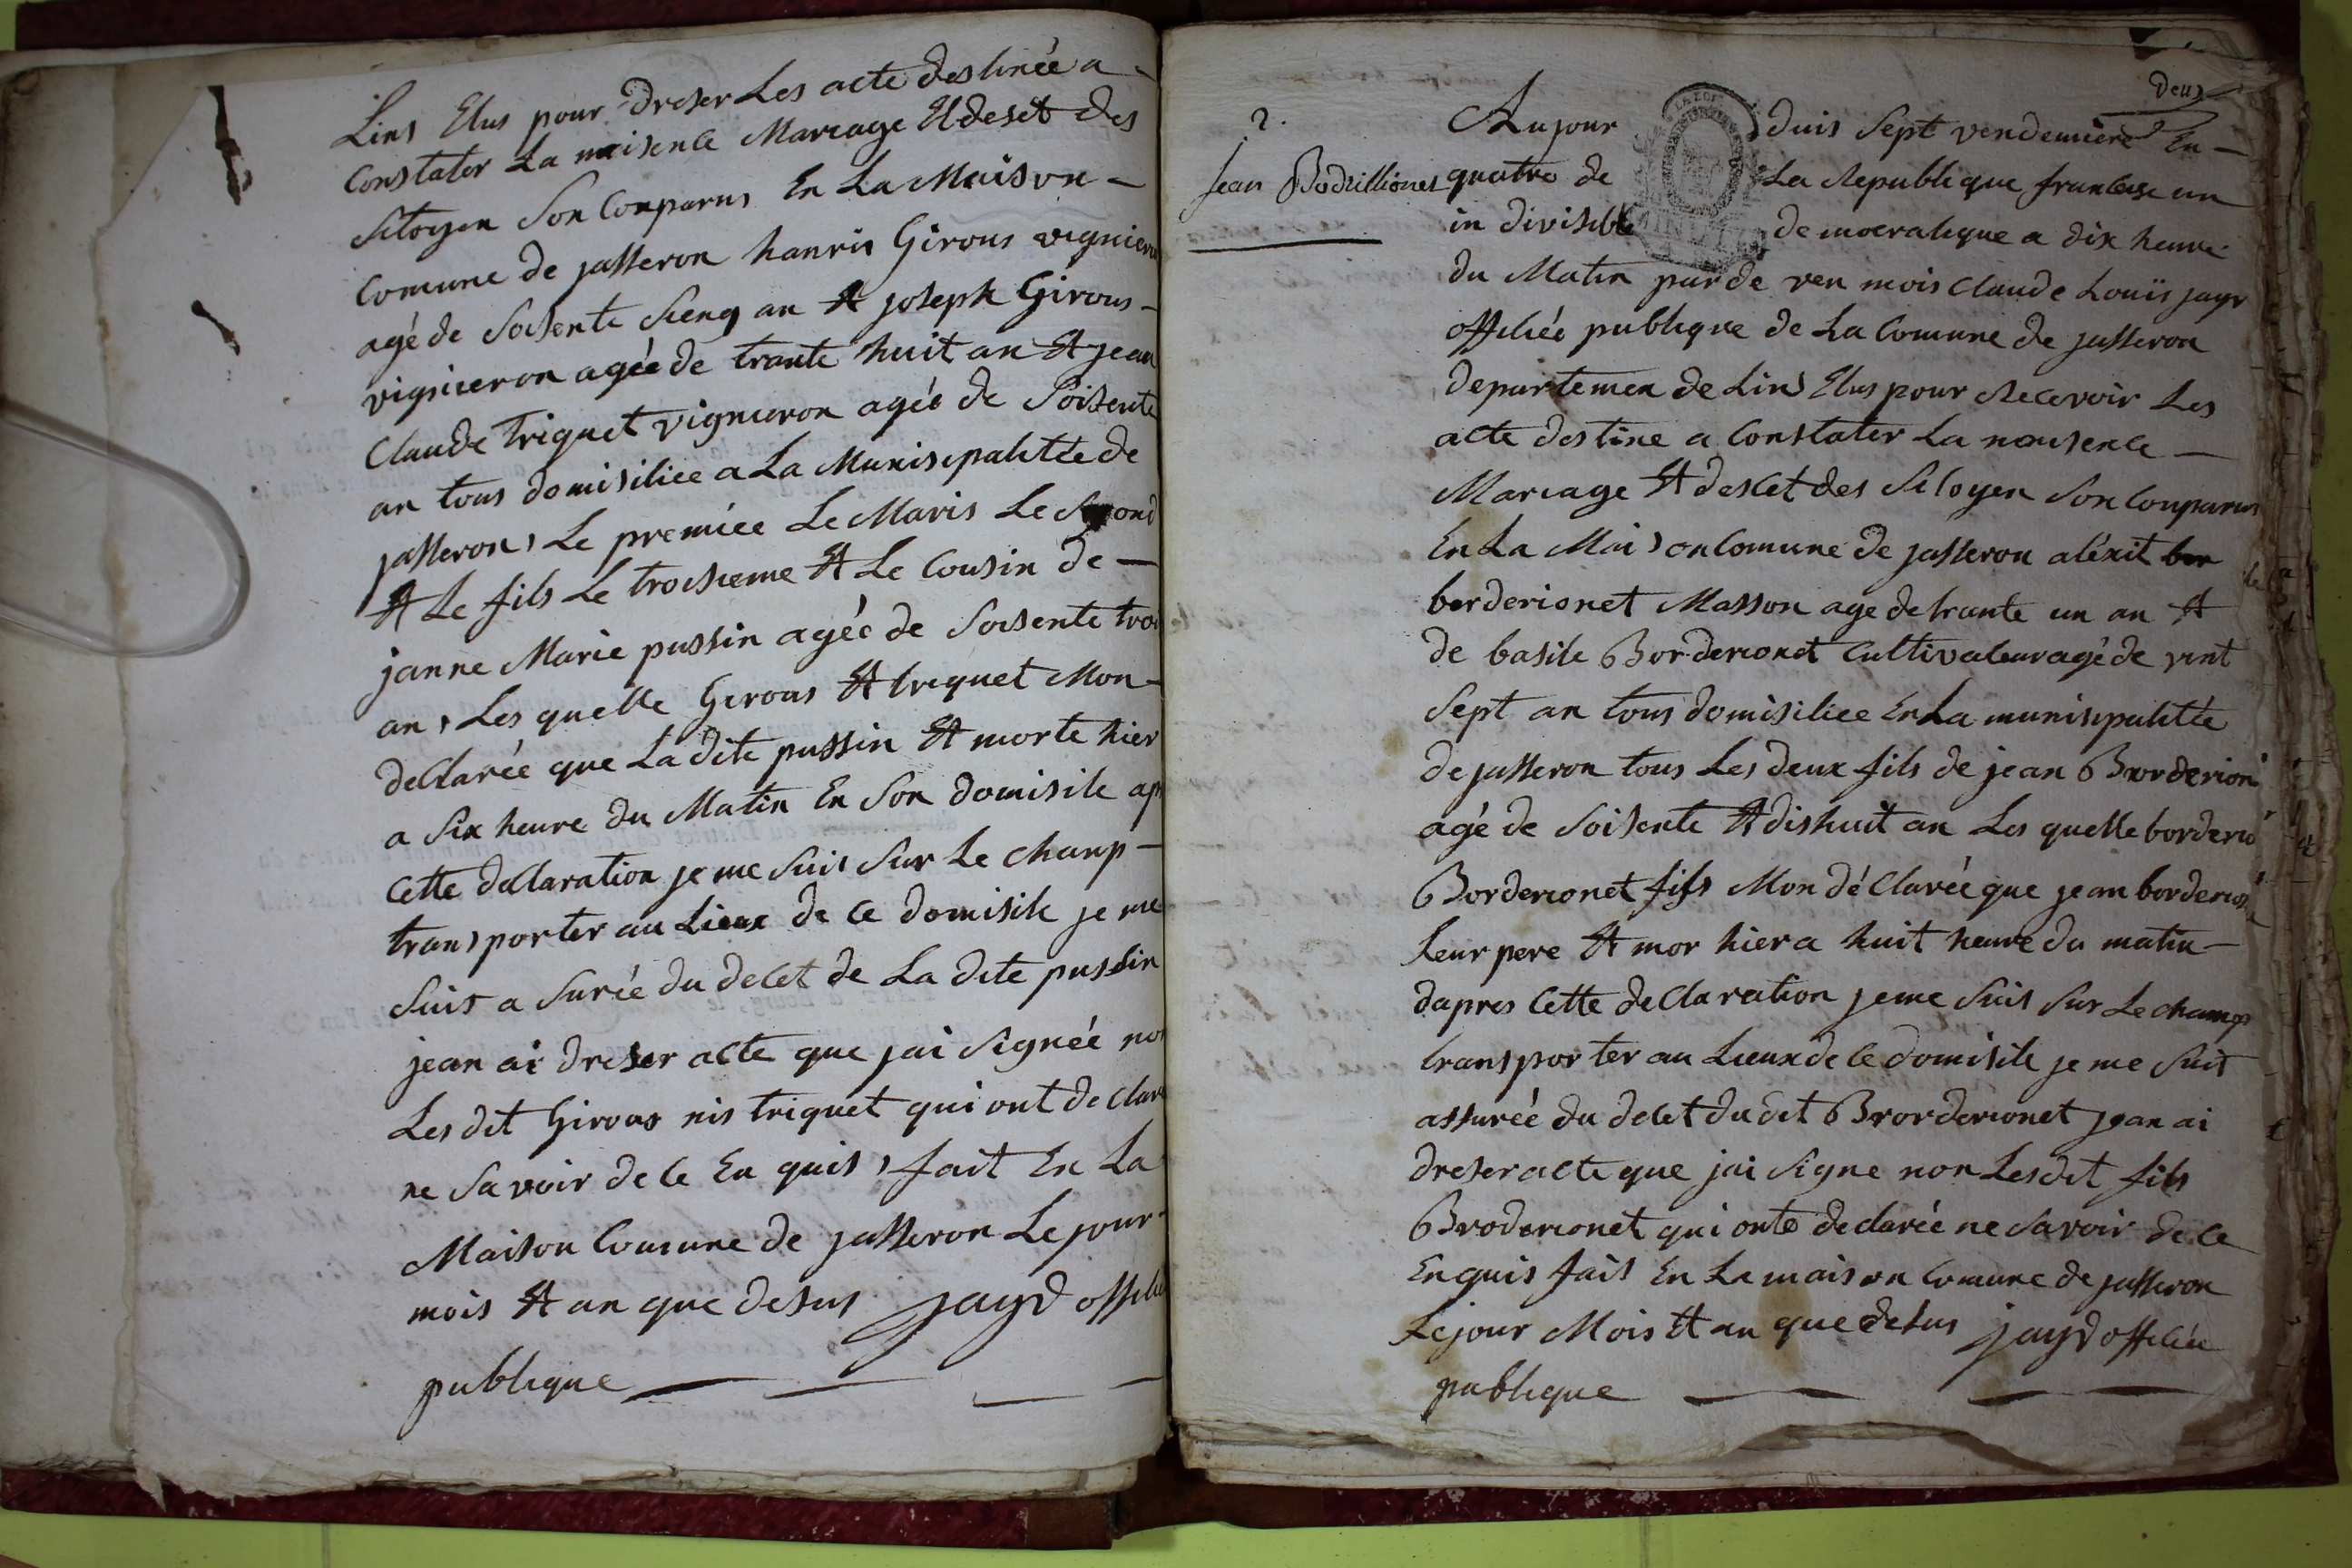 Lins Elus pour dreser Les acte destinée a
Constater La naisence Mareage Et deset des
Sitoyen Son Conparus En La Maison
Comune de jasseron hanris Girous vignieron
agé de Soisente Sienq an Et joseph Girous
vignieron agée de trante huit an Et jean
Claude Triquet vigneron ageé de Soisente
an tous domisiliee a La Munisipalitée de
jasseron, Le premiée Le Maris Le Segond
Et Le fils Le troisieme Et Le Cousin de
janne Marie pussin ageé de Soisente troi
an, Les quelle Girous Et triquet Mon
declareé que La dite pussin Et morte hier
a Six heure du Matin En Son domisile apr
Cette declaration je me Suis Sur Le chanp
transporter au Lieux de Ce domisile je me
Suis a Surée du decet de La dite pussin
jean ai dreser acte que jai Signeé non
Les dit Girous nis triquet qui ont declare
ne Savoir de Ce En quis, fait En La
Maison Comune de jasseron Le jour
mois Et an que desus jayr offi
publique
deux
2.
Jean Bodrillionet
Aujour duis Sept vendemiere En
quatre de La Republique francaise un
in divisible democratique a dix heure
du Matin par de ven mois Claude Louïs jayr
officiée publique de La Comune de jasseron
departemen de Lins Elus pour Recevoir Les
acte destine a Constater La naisence
Mareage Et deset des Sitoyen Son Conparus
En La Maison Comune de jasseron aléxit
borderionet Masson age de trante un an Et
de basile Borderionet Cultivateur agé de vint
Sept an tous domisiliee En La munisipalitée
de jasseron tous Les deux fils de jean Brorderion
agé de Soisente Et dishuit an Les quelle borderio
Borderionet fils Mon déClareé que jean borderio
Leur pere Et mor hier a huit heure du matin
dapres Cette deClaration je me Suis Sur Le champ
transporter au Lieux de Ce domisile je me Suis
assureé du decet du dit Brorderionet jean ai
dreser acte que jai Signe non Les dit fils
Broderionet qui onte declarée ne Savoir de Ce
Enquis fait En La maison Comune de jasseron
Le jour Mois Et an que desus jayr officiée
publique